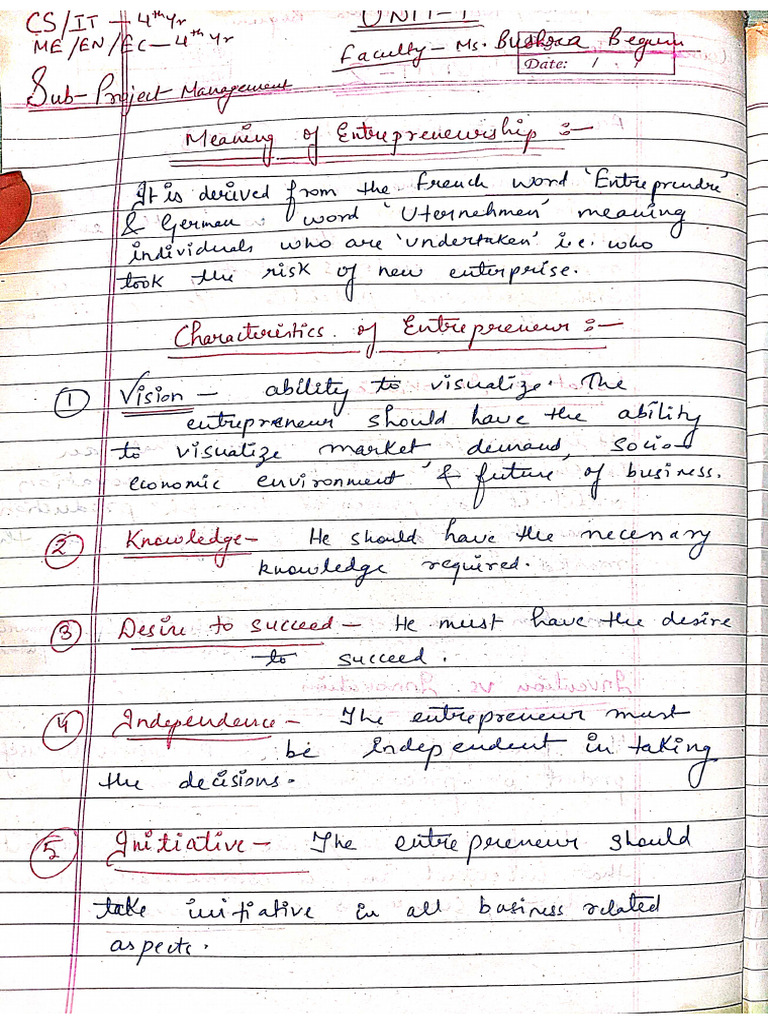 CS/IT - 4th yr
UNIT-1
ME/EN/EC - 4th yr
Faculty - Ms. Bushra Begum
Date: / /
Sub- Project Management
Meaning of Entrepreneurship :-
It is derived from the French word 'Entreprendre'
& German word 'Uternehmen' meaning
individuals who are 'undertaken' i.e. who
took the risk of new enterprise.
Characteristics of Entrepreneur :-
① Vision - ability to visualize. The
entrepreneur should have the ability
to visualize market demand, socio-
economic environment & future of business.
② Knowledge - He should have the necessary
knowledge required.
③ Desire to succeed - He must have the desire
to succeed.
④ Independence - The entrepreneur must
be independent in taking
the decisions.
⑤ Initiative - The entrepreneur should
take initiative in all business related
aspects.